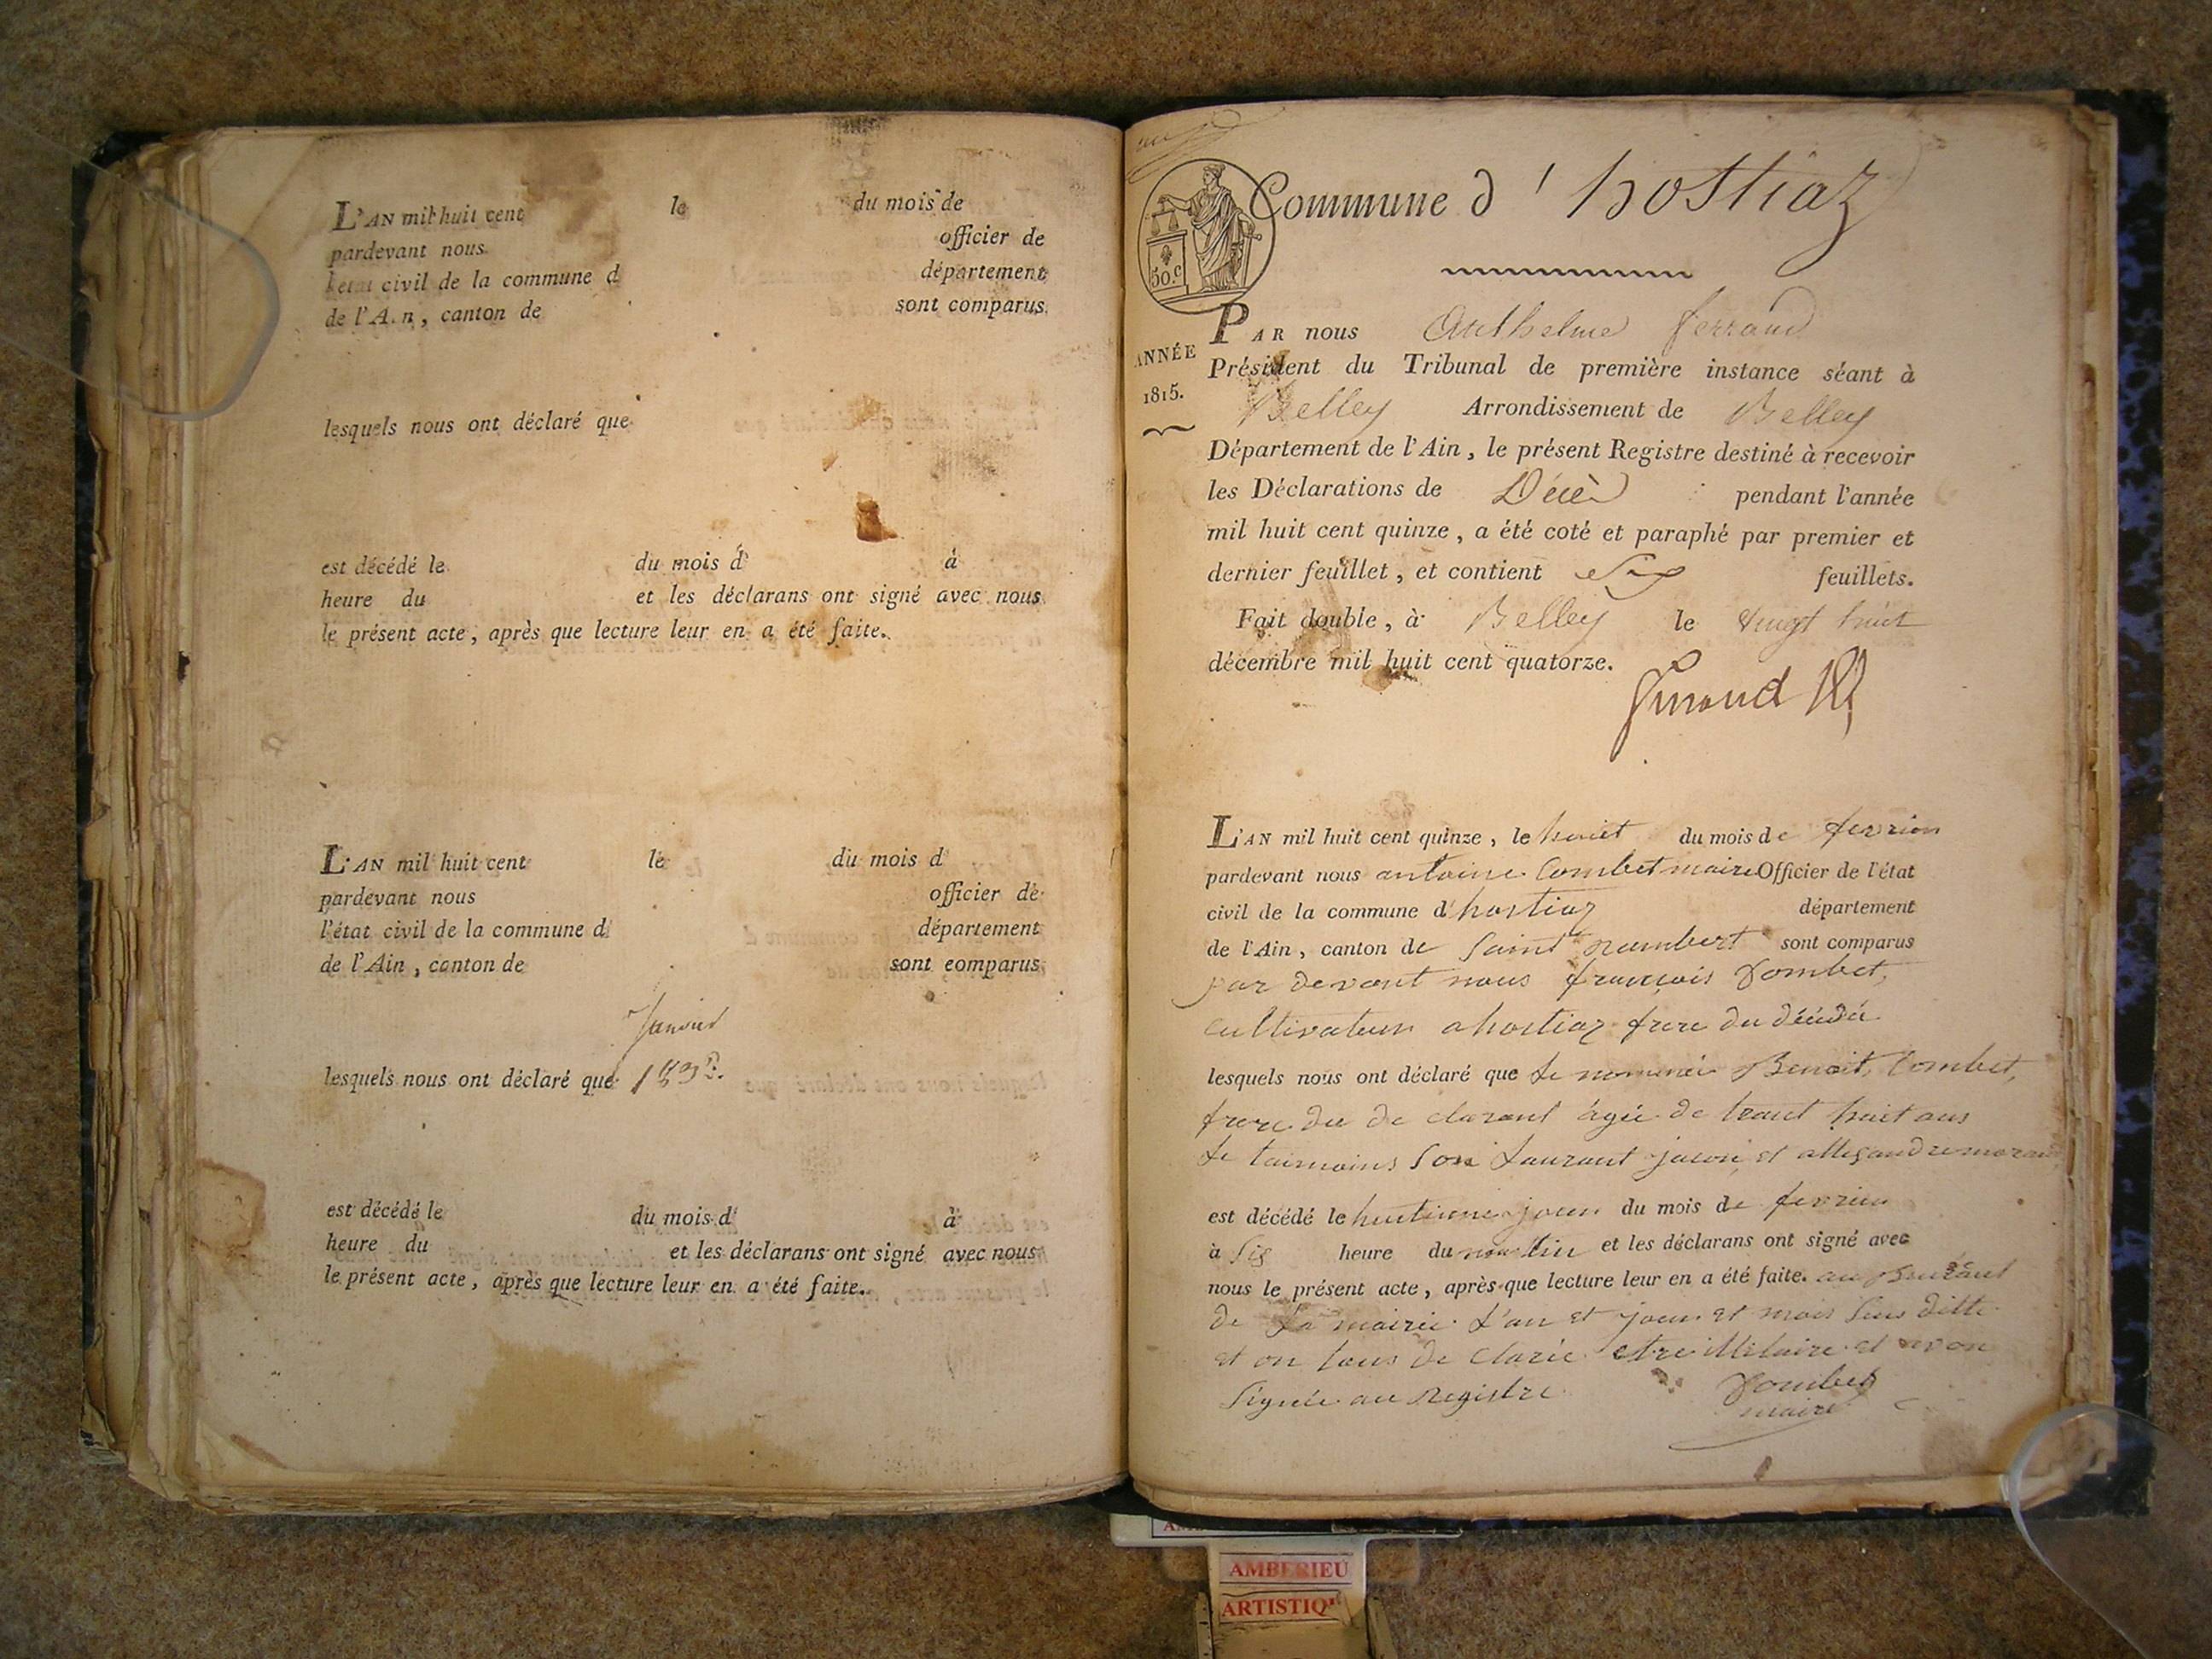 L'AN mil huit cent le du mois de
pardevant nous officier de
l'état civil de la commune d département
de l'A.n, canton de sont comparus
lesquels nous ont déclaré que
est décédé le du mois d' à
heure du et les déclarans ont signé avec nous
le présent acte, après que lecture leur en a été faite.
L'AN mil huit cent le du mois d
pardevant nous officier de
l'état civil de la commune d département
de l'Ain, canton de sont comparus
Janvier
lesquels nous ont déclaré que
est décédé le du mois d' à
heure du et les déclarans ont signé avec nous
le présent acte, après que lecture leur en a été faite.
Commune d'hostiaz
50.c
PAR nous Anthelme ferrand
ANNÉE
1815.
Président du Tribunal de première instance séant à
Belley Arrondissement de Belley
Département de l'Ain, le présent Registre destiné à recevoir
les Déclarations de Décès pendant l'année
mil huit cent quinze, a été coté et paraphé par premier et
dernier feuillet, et contient Six feuillets.
Fait double, à Belley le Vingt huit
décembre mil huit cent quatorze.
L'AN mil huit cent quinze, le huit du mois de fevrier
pardevant nous antoine Combet maire Officier de l'état
civil de la commune d'hostiaz département
de l'Ain, canton de Saint rambert sont comparus
par devant nous françois Combet,
cultivateur a hostiaz frere du décédé
lesquels nous ont déclaré que le nommé Benoit Combet,
frere du de clarant agée de trant huit ans
le taimoins son Laurant et allexandre
est décédé le huitieme jour du mois de fevrier
à six heure du matin et les déclarans ont signé avec
nous le présent acte, après que lecture leur en a été faite. au
de la mairie l'an et jour et mois sus ditte
et on tous de clarée etre illitaire et
Signée au Registre Combet
maire
AMBERIEU
ARTISTIQ